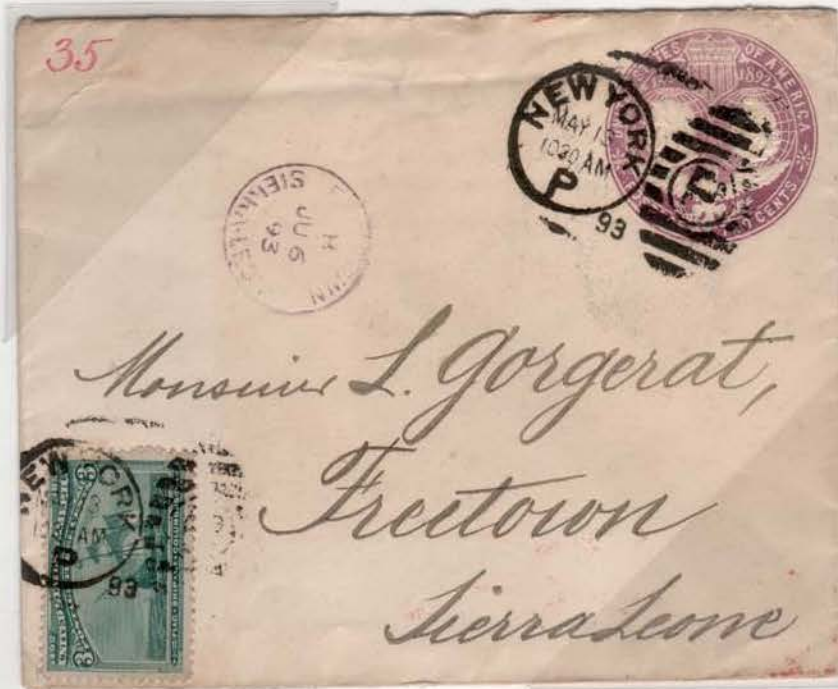 35
OF AMERICA
1892
CENTS
NEW YORK
MAY
1030 AM
P
93
SIERRA LEONE
JU 6
93
Monsieur L. Gorgerat,
Freetown
Sierra Leone
NEW YORK
AM
93